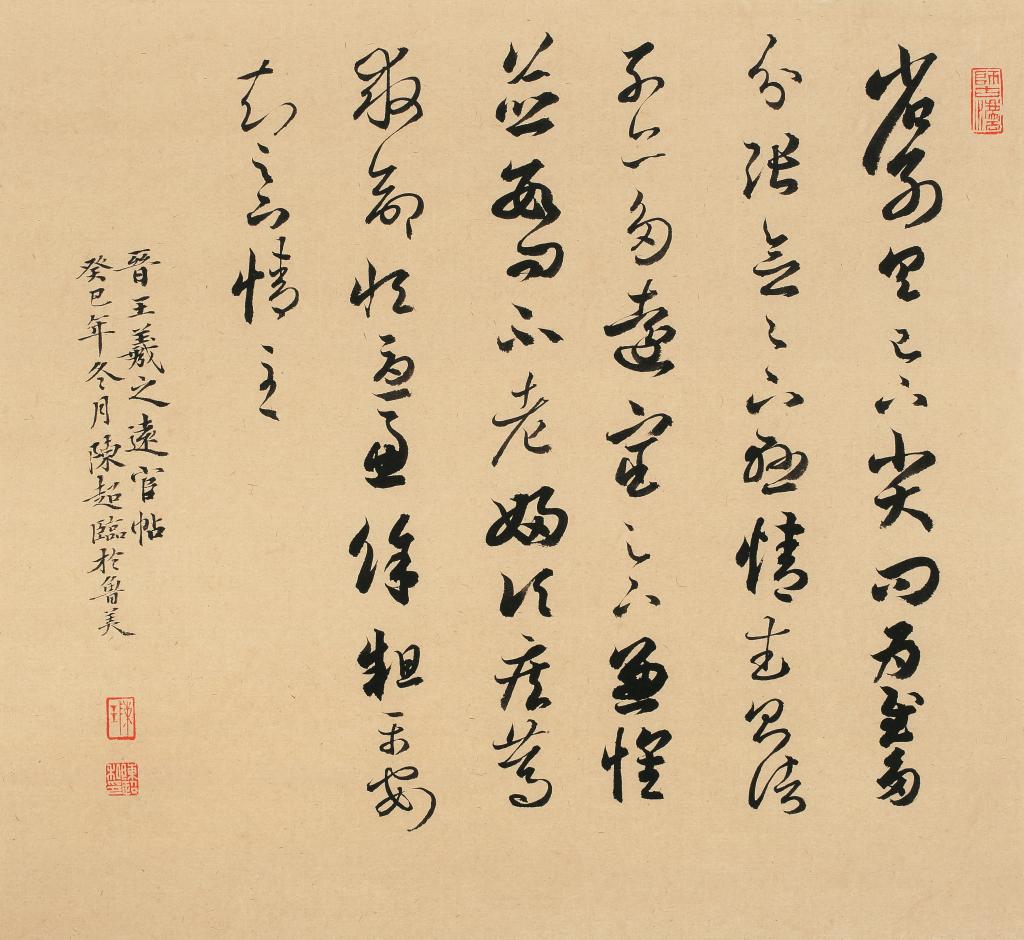 省別具足下小大問為慰多
分張念足下懸情武昌諸
子亦多遠宦足下兼懷
並數問不老婦頃疾篤
救命恒憂慮餘粗平安
知足下情至
晉王羲之遠宦帖
癸巳年冬月陳超臨於魯美